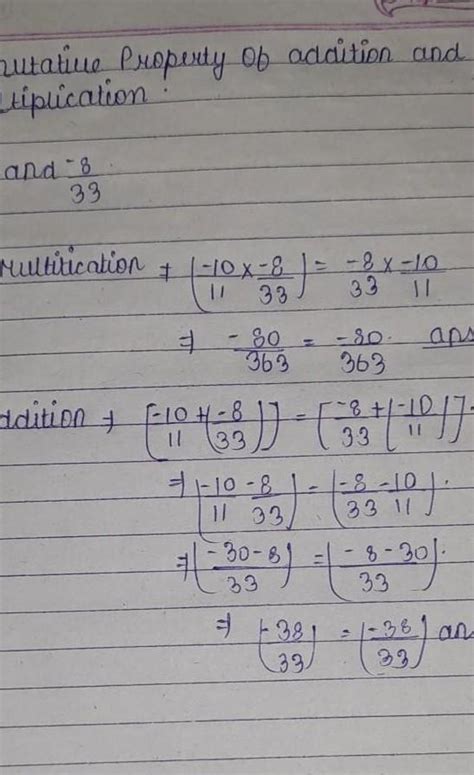 mutative Property Of addition and
tiplication.
and -8/33
Multitication → (-10/11 × -8/33) = -8/33 × -10/11
⇒ -80/363 = -80/363 ans
ddition → [-10/11 + (-8/33)] = [-8/33 + (-10/11)].
⇒ (-10/11 -8/33) = (-8/33 -10/11).
⇒ (-30-8/33) = (-8-30/33).
⇒ (-38/33) = (-38/33) an